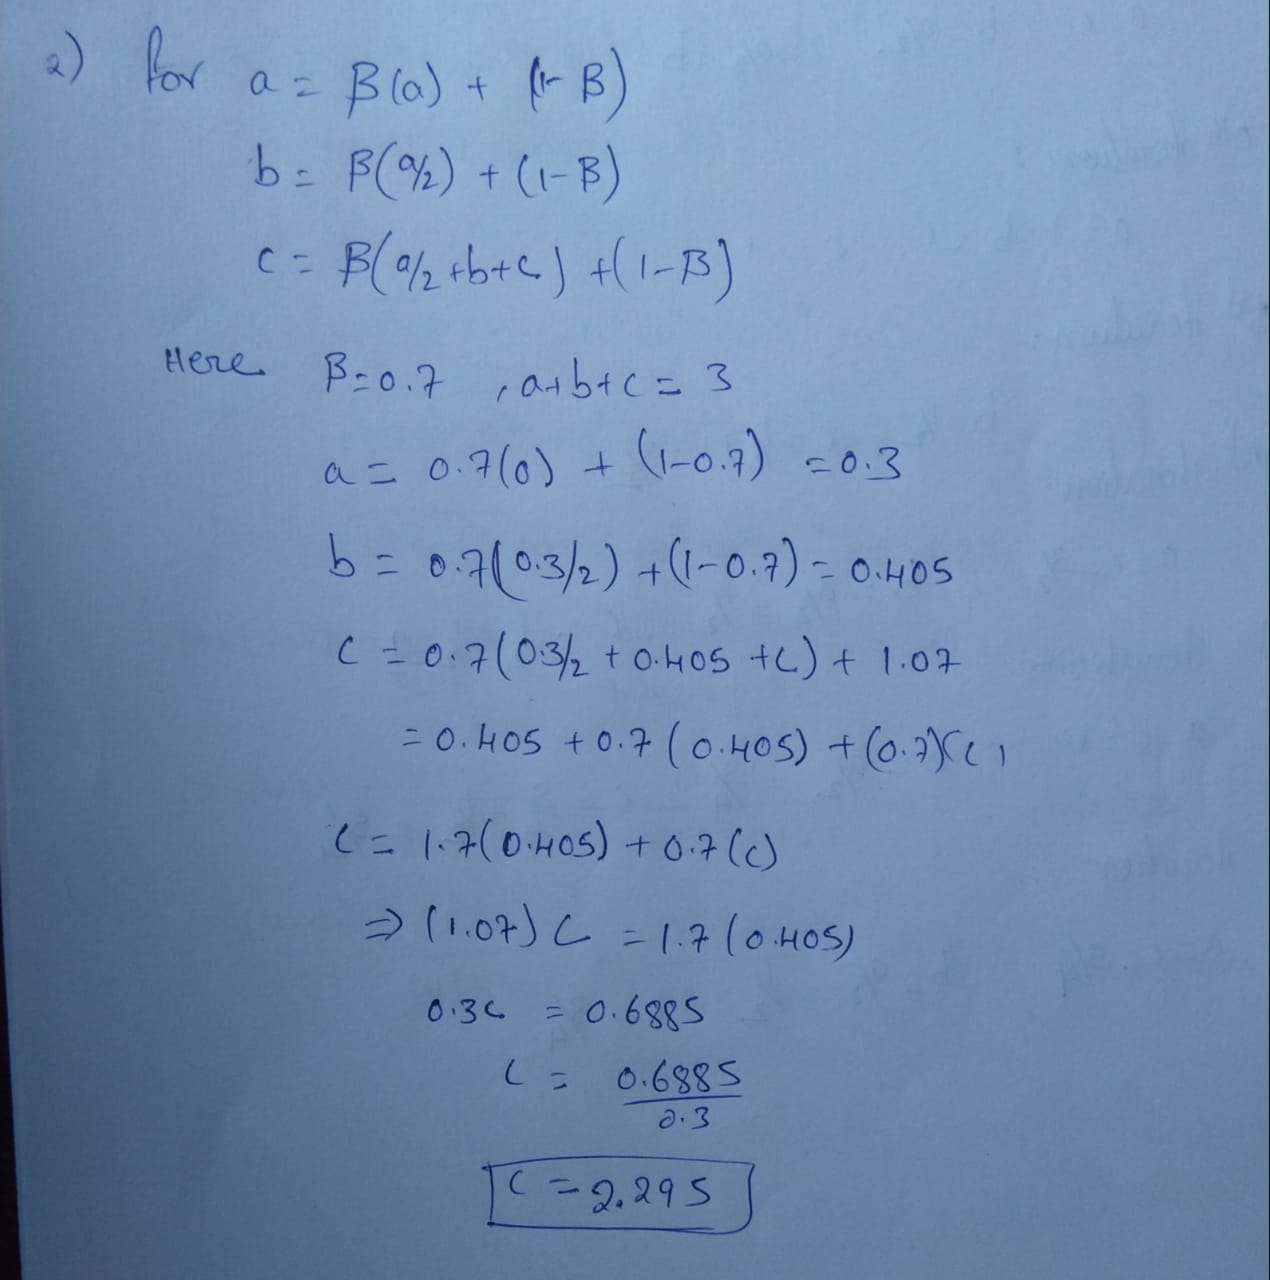 2) for a = β(a) + (1-β)
b = β(a/2) + (1-β)
c = β(a/2 +b+c) +(1-β)
Here β=0.7 , a+b+c = 3
a = 0.7(0) + (1-0.7) =0.3
b = 0.7(0.3/2) +(1-0.7) = 0.405
c = 0.7(0.3/2 + 0.405 +c) + 1.07
= 0.405 + 0.7 (0.405) + (0.7)(c)
c = 1.7(0.405) + 0.7(c)
⇒ (1.07) c = 1.7(0.405)
0.3c = 0.6885
c = 0.6885
0.3
c = 2.295